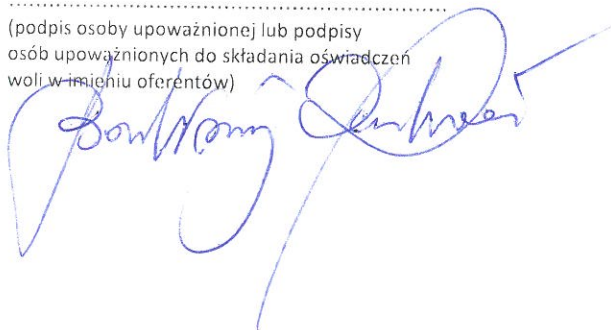 ........................................................................
(podpis osoby upoważnionej lub podpisy
osób upoważnionych do składania oświadczeń
woli w imieniu oferentów)